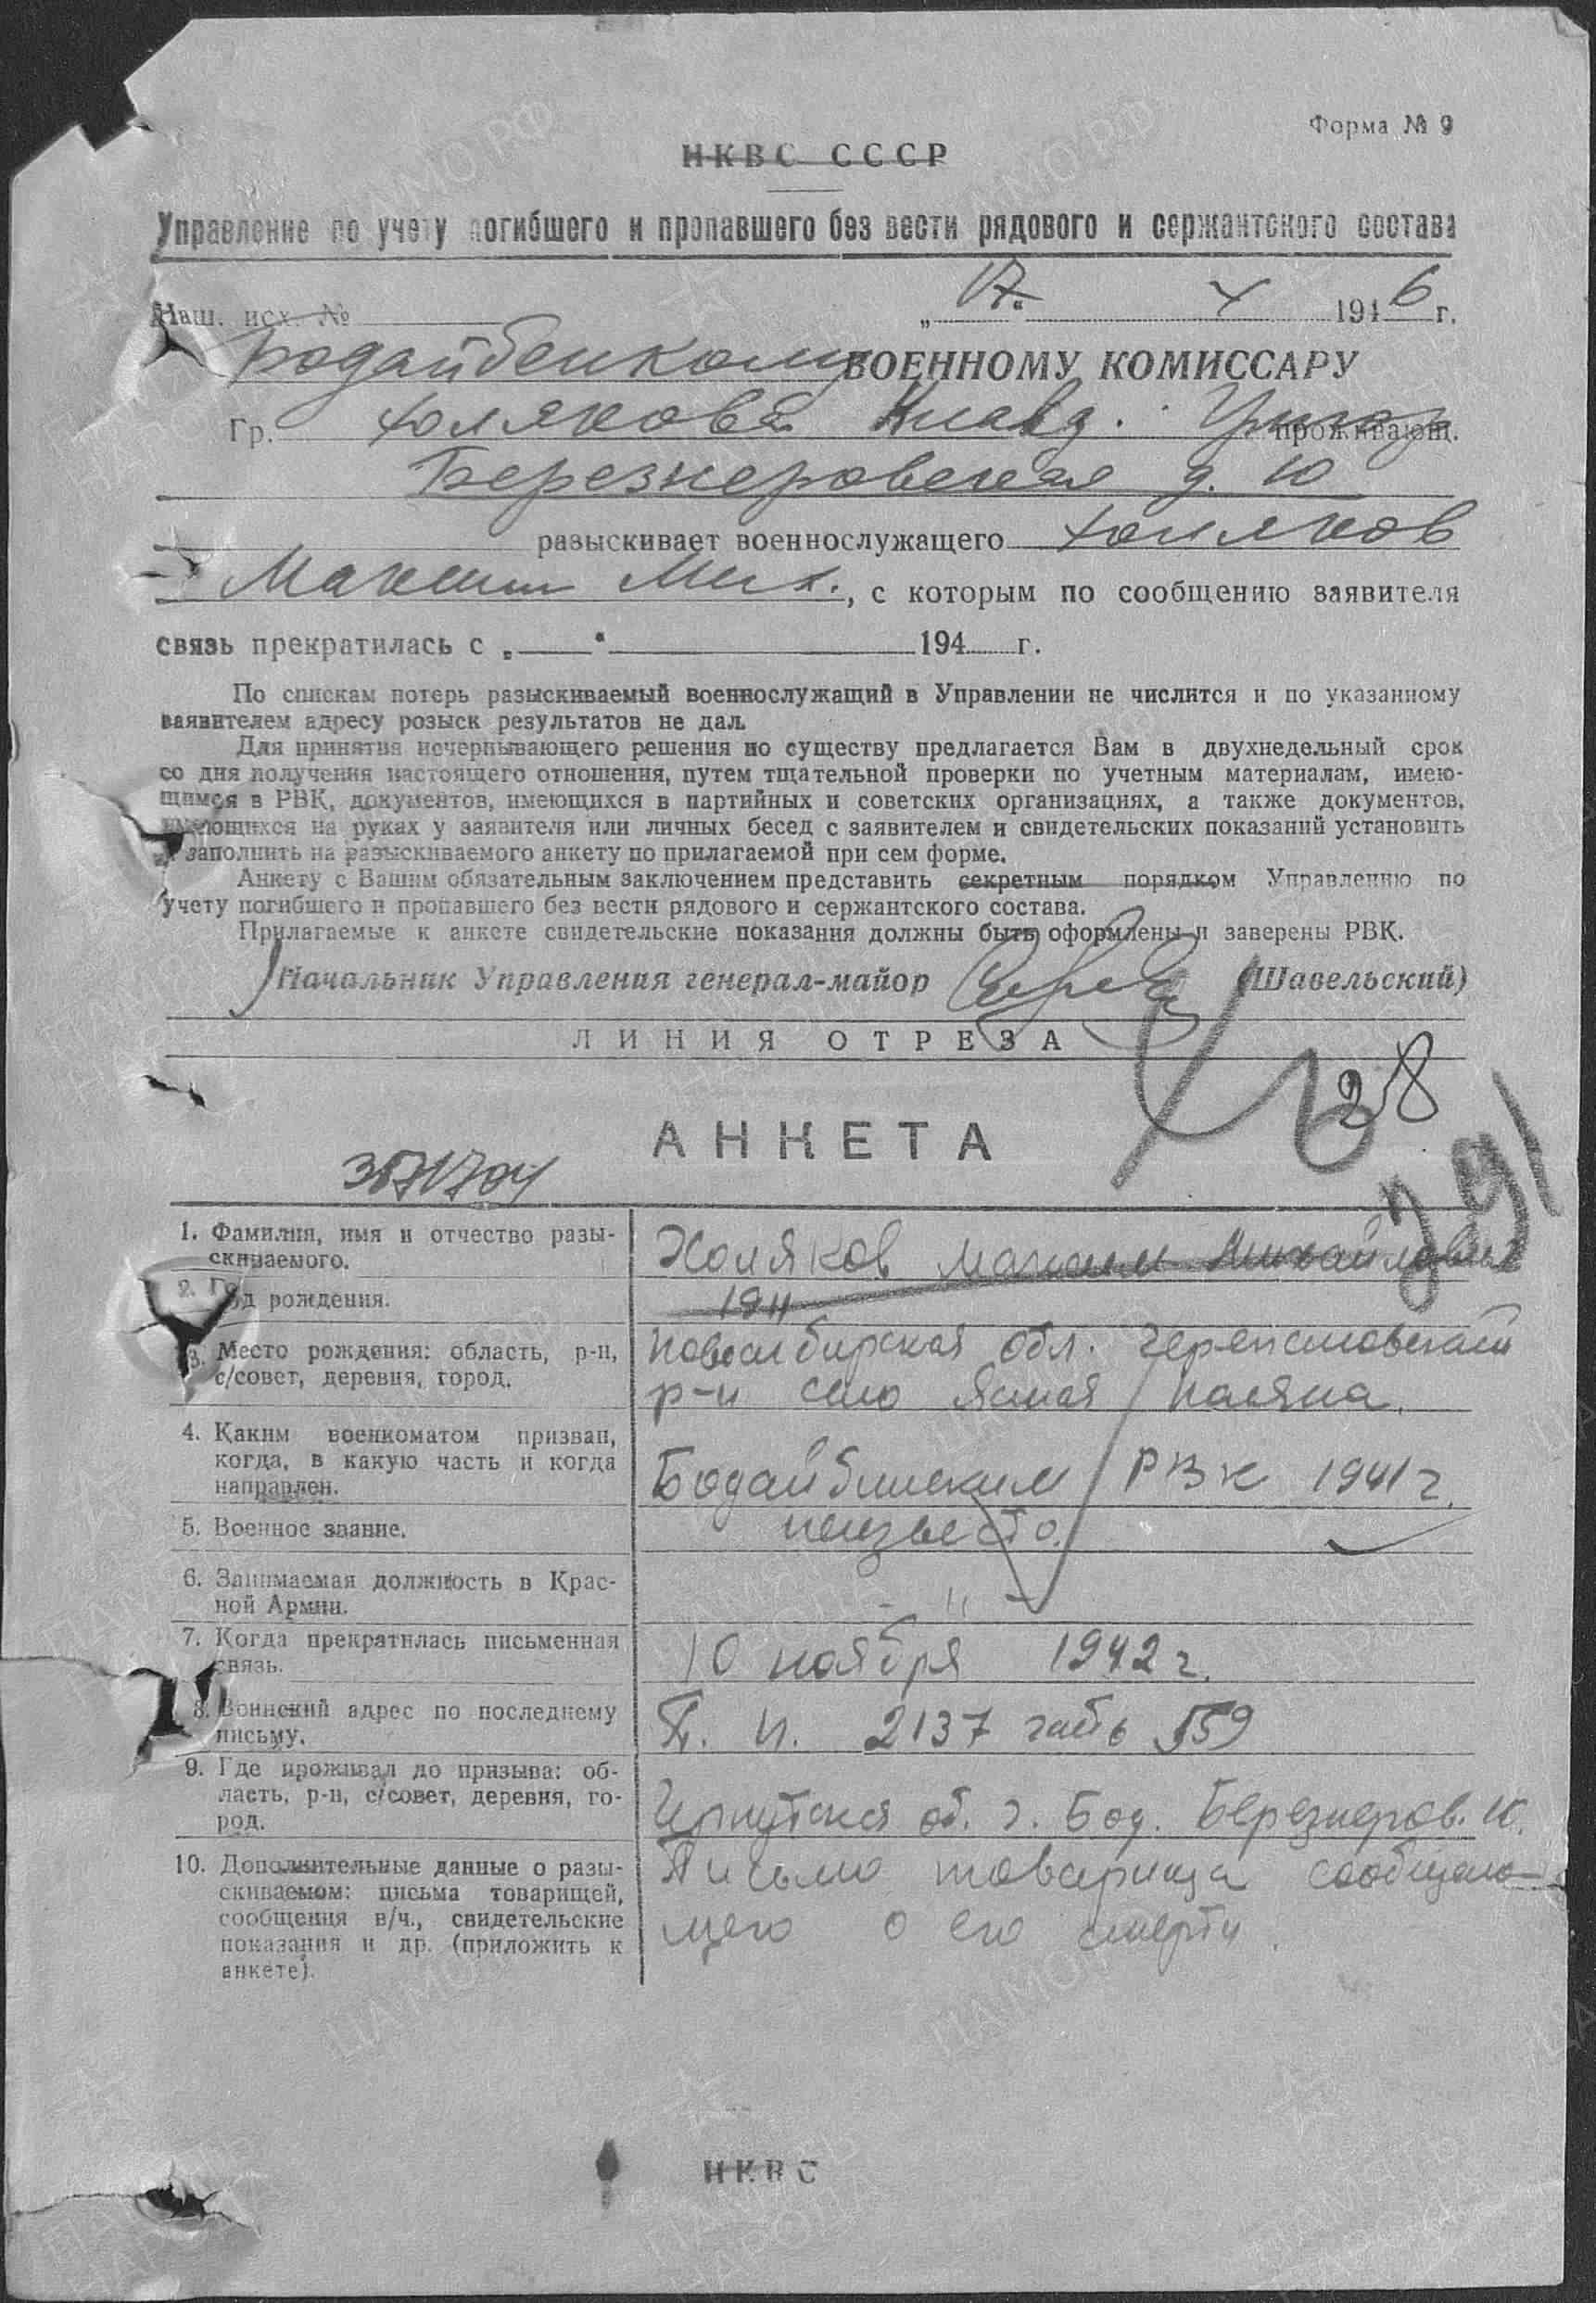 Форма № 9
НКВС СССР
Управление по учету погибшего и пропавшего без вести рядового и сержантского состава
Наш. исх. № „17“ 4 1946 г.
Бодайбенкому ВОЕННОМУ КОМИССАРУ
Гр. Холякова Клавд. проживающ.
Березнеровская д. 10
разыскивает военнослужащего Холяков
Максим Мих., с которым по сообщению заявителя
связь прекратилась с „ “ 194 г.
По спискам потерь разыскиваемый военнослужащий в Управлении не числится и по указанному
заявителем адресу розыск результатов не дал.
Для принятия исчерпывающего решения по существу предлагается Вам в двухнедельный срок
со дня получения настоящего отношения, путем тщательной проверки по учетным материалам, имею-
щимся в РВК, документов, имеющихся в партийных и советских организациях, а также документов,
имеющихся на руках у заявителя или личных бесед с заявителем и свидетельских показаний установить
и заполнить на разыскиваемого анкету по прилагаемой при сем форме.
Анкету с Вашим обязательным заключением представить секретным порядком Управлению по
учету погибшего и пропавшего без вести рядового и сержантского состава.
Прилагаемые к анкете свидетельские показания должны быть оформлены и заверены РВК.
Начальник Управления генерал-майор (Шавельский)
ЛИНИЯ ОТРЕЗА
28
АНКЕТА
1. Фамилия, имя и отчество разы-
скиваемого.
Холяков Максим Михайлович
2. Год рождения.
1911
3. Место рождения: область, р-н,
с/совет, деревня, город.
Новосибирская обл. Черепановский
р-н село Ясная Поляна.
4. Каким военкоматом призван,
когда, в какую часть и когда
направлен.
Бодайбинским РВК 1941 г.
5. Военное звание.
неизвесто.
6. Занимаемая должность в Крас-
ной Армии.
- " -
7. Когда прекратилась письменная
связь.
10 ноября 1942 г.
8. Воинский адрес по последнему
письму.
П. П. 2137 часть 559
9. Где проживал до призыва: об-
ласть, р-н, с/совет, деревня, го-
род.
Иркутская об. г. Бод. Березнеров. 10.
10. Дополнительные данные о разы-
скиваемом: письма товарищей,
сообщения в/ч., свидетельские
показания и др. (приложить к
анкете).
Письмо товарища сообщаю-
щего о его смерти.
НКВС